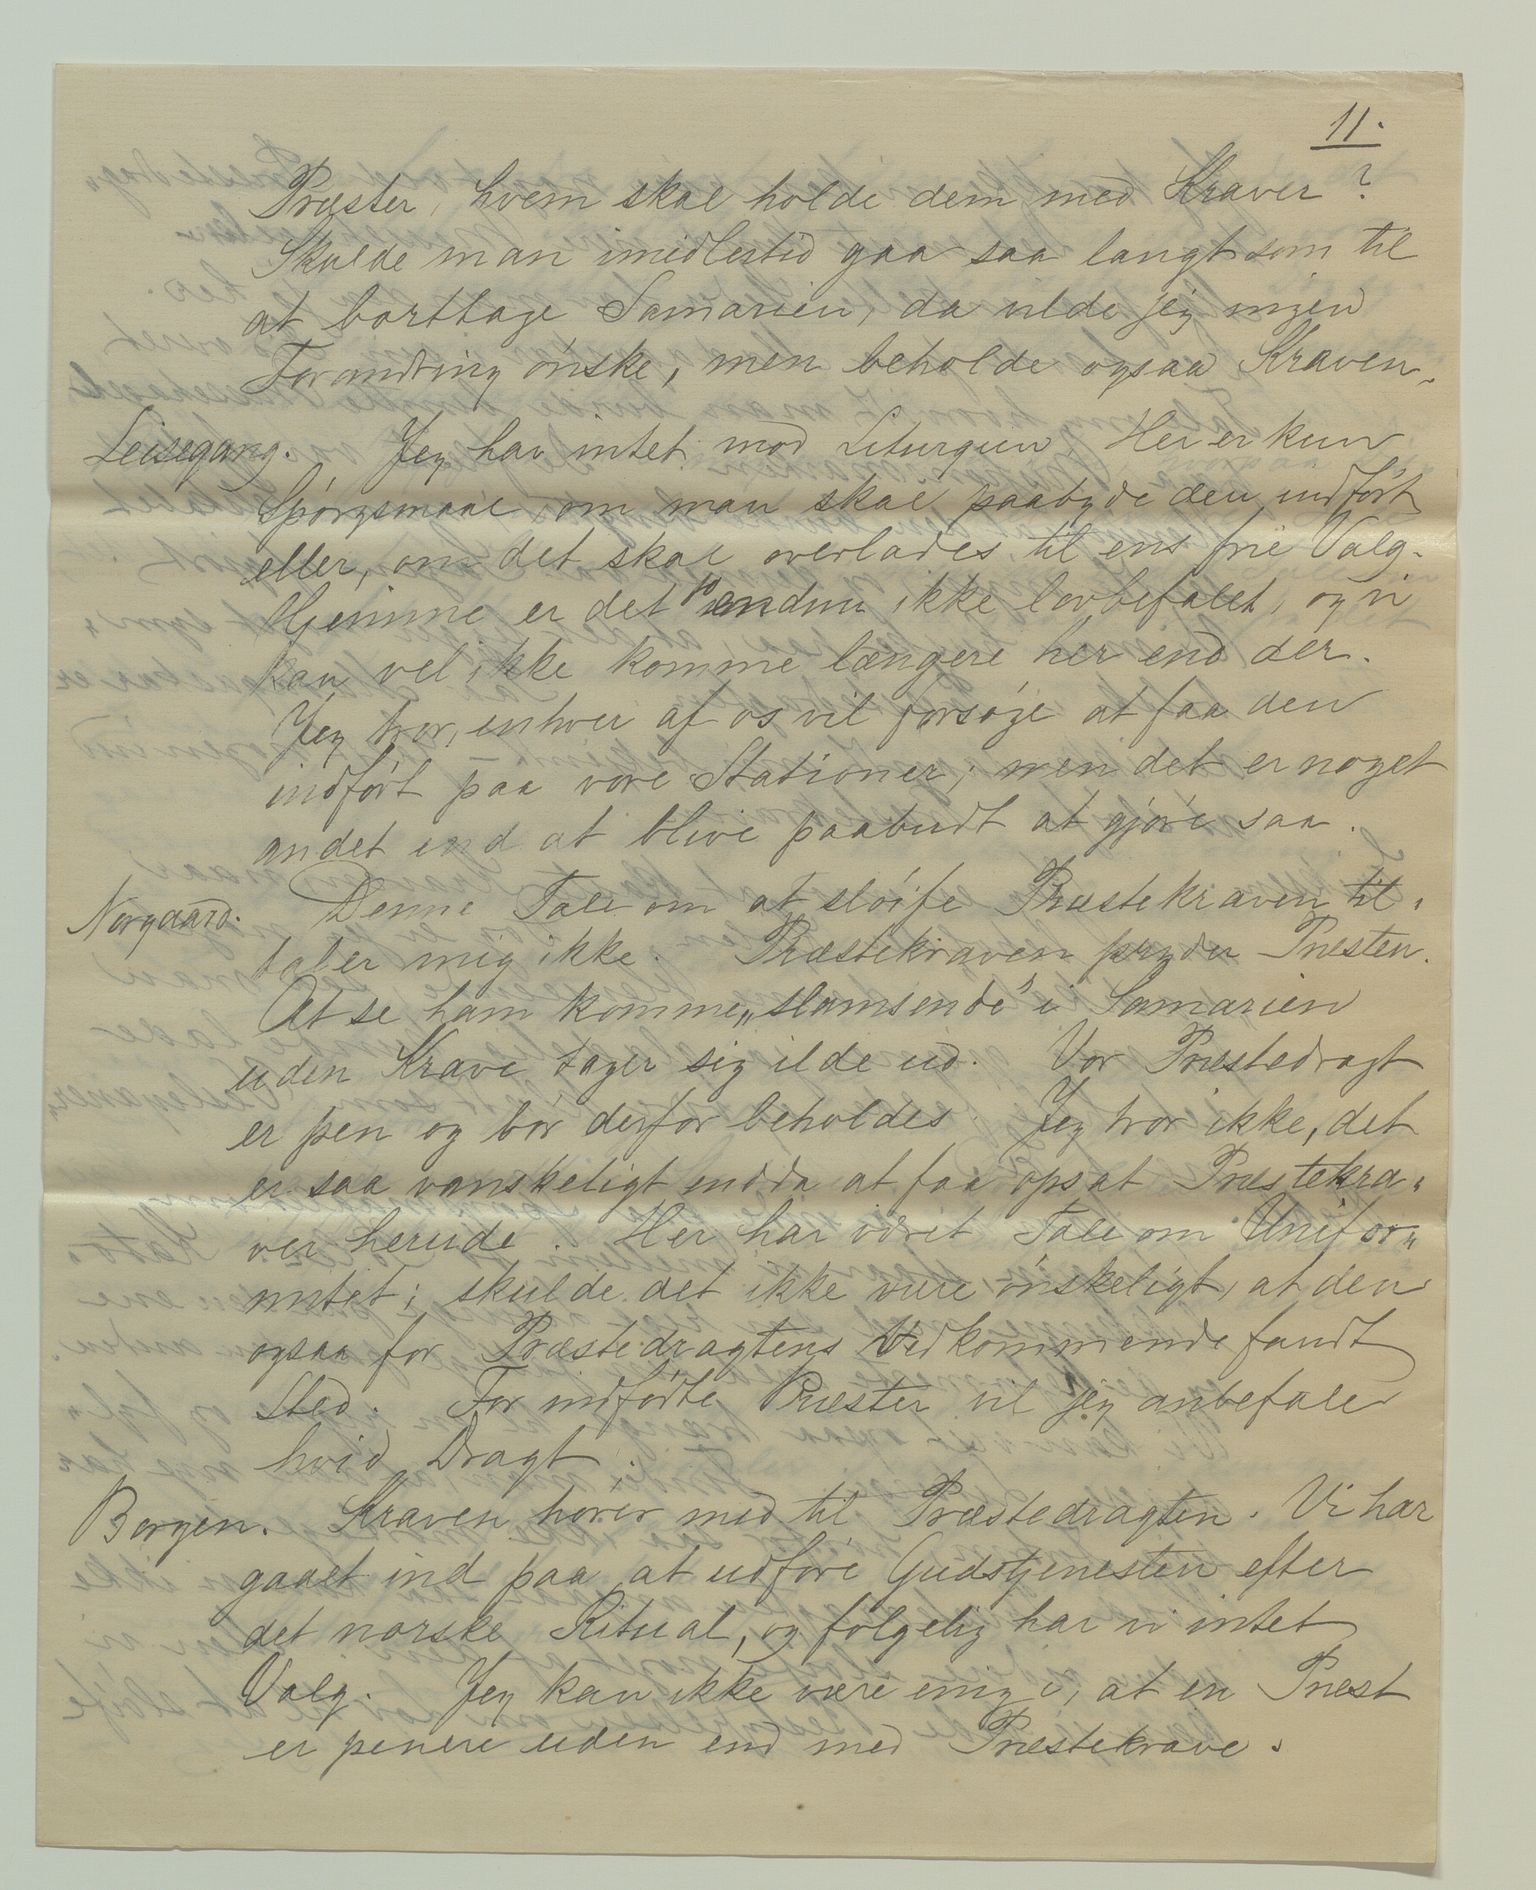 11.
Præster, hvem skal holde dem med Kraver?
Skulde man imidlertid gaa saa langt som til
at borttage Samarien, da vilde jeg ingen
Forandring ønske, men beholde ogsaa Kraven.
Leisegang. Jeg har intet mod Liturgien. Her er kun
Spørgsmaal om man skal paabyde den indført
eller, om det skal overlades til ens frie Valg.
Hjemme er det jo endnu ikke lovbefalet, og vi
kan vel ikke komme længere her end der.
Jeg tror, enhver af os vil forsøge at faa den
indført paa vore Stationer; men det er noget
andet end at blive paabudt at gjøre saa.
Norgaard. Denne Tale om at sløife Præstekraven til„
taler mig ikke. Præstekraven pryder Præsten.
At se ham komme „slamsende" i Samarien
uden Krave tager sig ilde ud. Vor Præstedragt
er pen og bør derfor beholdes. Jeg tror ikke, det
er saa vanskeligt endda at faa opsat Præstekra„
ver herude. Her har været Tale om Unifor„
mitet; skulde det ikke være ønskeligt, at den
ogsaa for Præstedragtens Vedkommende fandt
Sted. For indfødte Præster vil jeg anbefale
hvid Dragt.
Borgen. Kraven hører med til Præstedragten. Vi har
gaaet ind paa at udføre Gudstjenesten efter
det norske Ritual, og følgelig har vi intet
Valg. Jeg kan ikke være enig i, at en Præst
er penere uden end med Præstekrave.